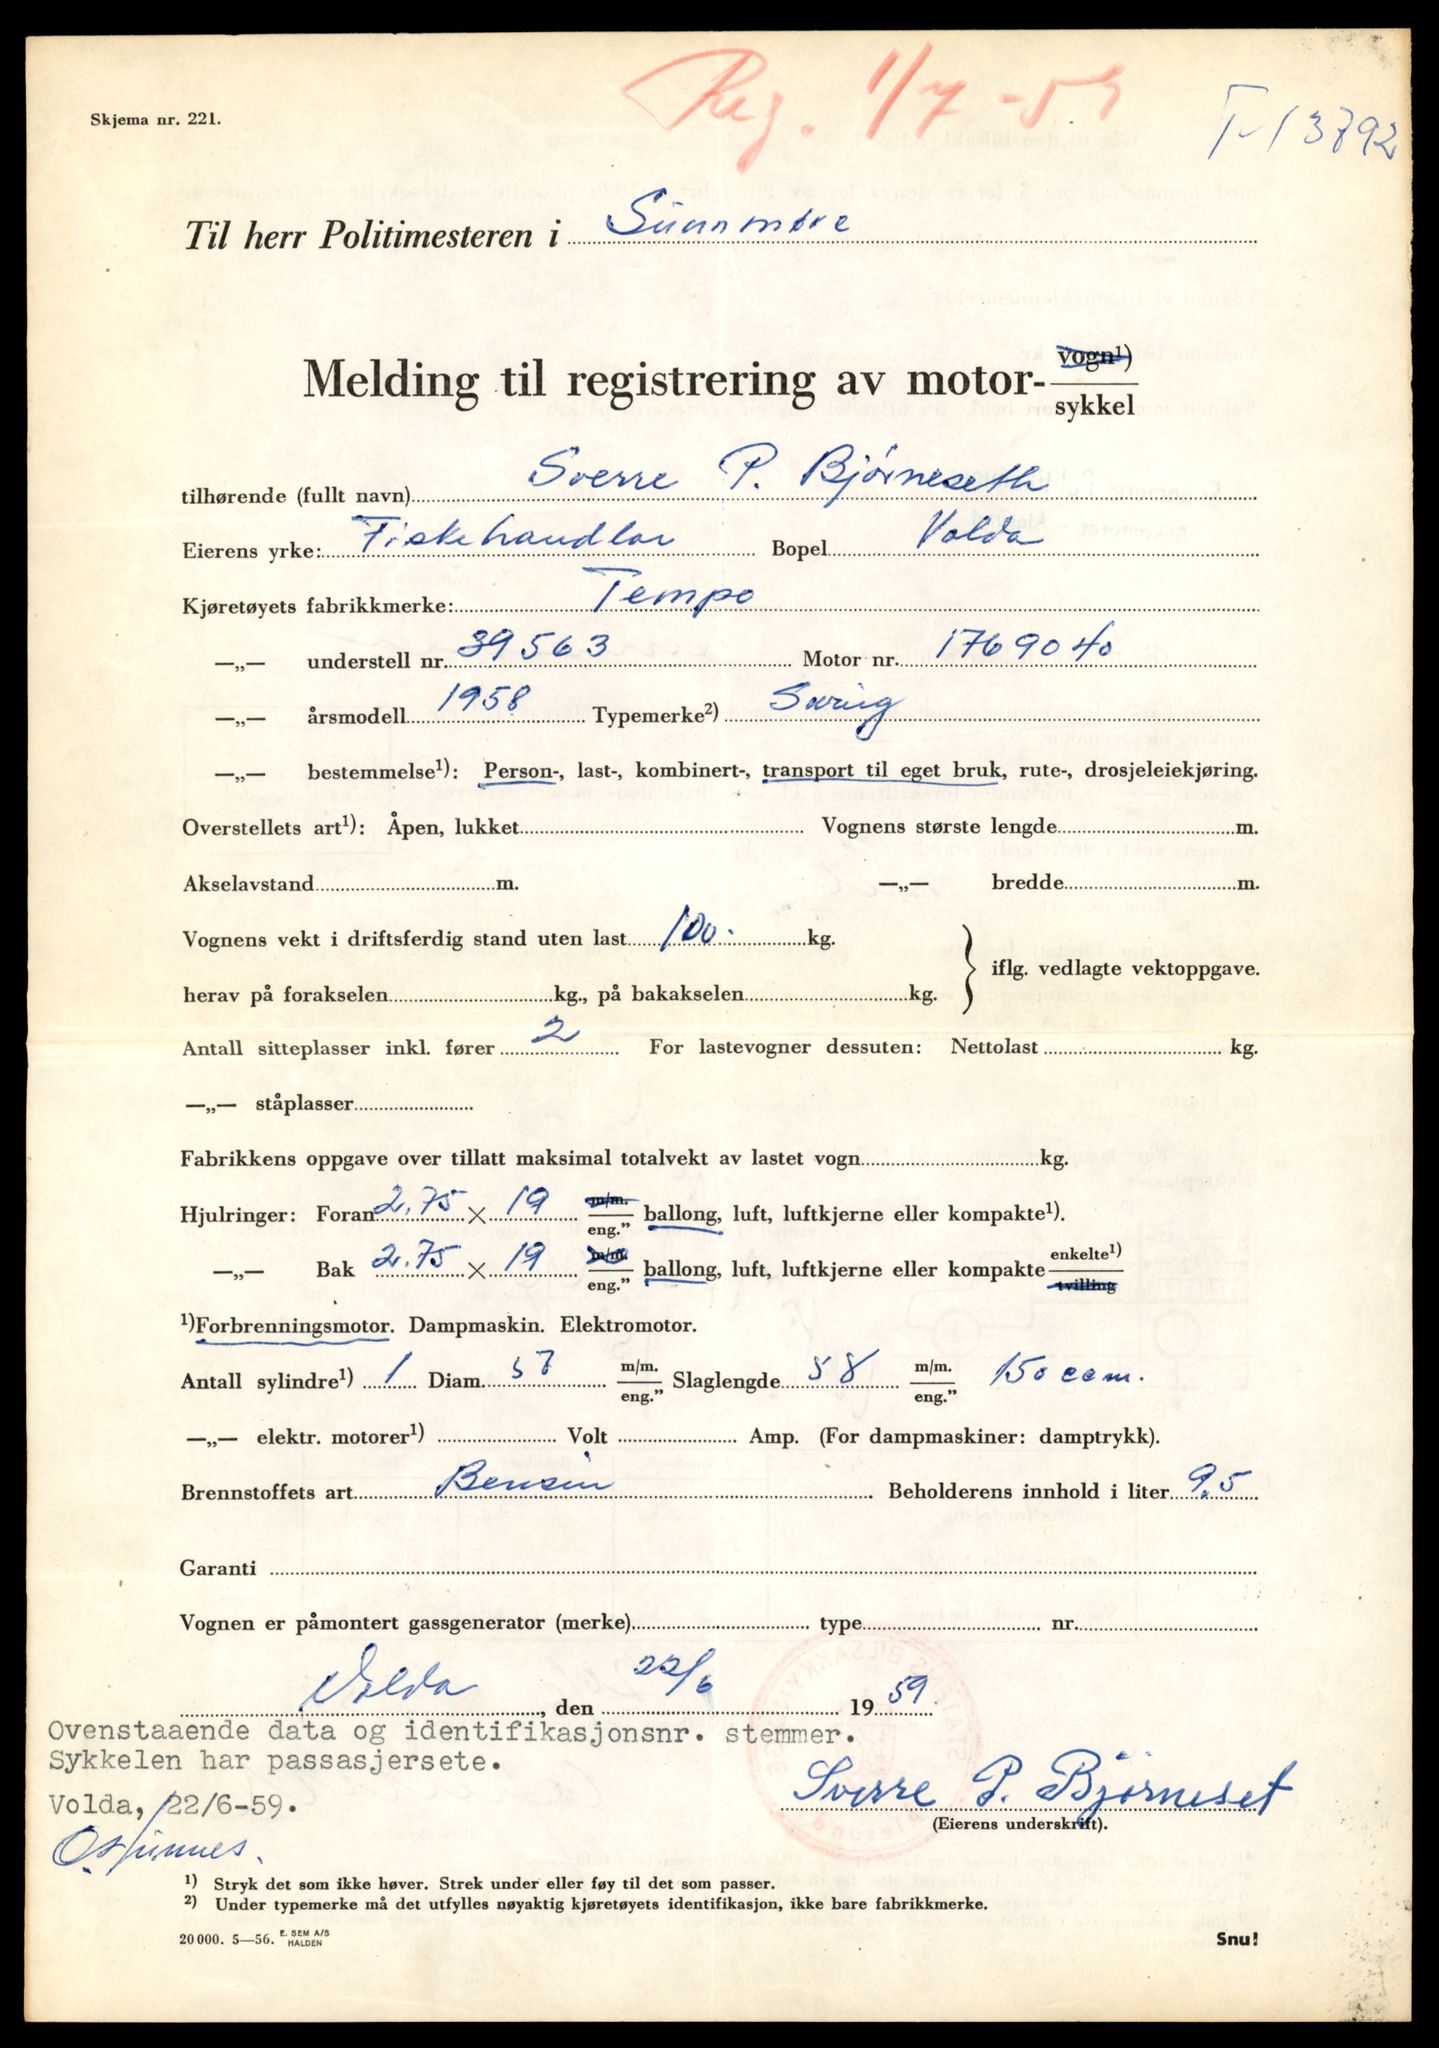 Reg. 1/7-59
T-13792
Skjema nr. 221.
Til herr Politimesteren i Sunnmøre
Melding til registrering av motor- vogn¹)
sykkel
tilhørende (fullt navn) Sverre P. Bjørneseth
Eierens yrke: Fiskehandlar Bopel Volda
Kjøretøyets fabrikkmerke: Tempo
—„— understell nr. 39563 Motor nr. 1769040
—„— årsmodell 1958 Typemerke²) Swing
—„— bestemmelse¹): Person-, last-, kombinert-, transport til eget bruk, rute-, drosjeleiekjøring.
Overstellets art¹): Åpen, lukket Vognens største lengde m.
Akselavstand m. —„— bredde m.
Vognens vekt i driftsferdig stand uten last 100. kg.
herav på forakselen kg., på bakakselen kg. } iflg. vedlagte vektoppgave.
Antall sitteplasser inkl. fører 2 For lastevogner dessuten: Nettolast kg.
—„— ståplasser
Fabrikkens oppgave over tillatt maksimal totalvekt av lastet vogn kg.
Hjulringer: Foran 2.75 × 19 m/m. eng." ballong, luft, luftkjerne eller kompakte¹).
—„— Bak 2.75 × 19 m/m. eng." ballong, luft, luftkjerne eller kompakte enkelte¹) tvilling
¹)Forbrenningsmotor. Dampmaskin. Elektromotor.
Antall sylindre¹) 1 Diam. 57 m/m. eng." Slaglengde 58 m/m. eng." 150 ccm.
—„— elektr. motorer¹) Volt Amp. (For dampmaskiner: damptrykk).
Brennstoffets art Bensin Beholderens innhold i liter 9.5
Garanti
Vognen er påmontert gassgenerator (merke) type nr.
Volda, den 22/6 1959.
Ovenstaaende data og identifikasjonsnr. stemmer.
Sykkelen har passasjersete.
Volda, 22/6-59.
Sverre P. Bjørneset
(Eierens underskrift).
¹) Stryk det som ikke høver. Strek under eller føy til det som passer.
²) Under typemerke må det utfylles nøyaktig kjøretøyets identifikasjon, ikke bare fabrikkmerke.
20 000. 5—56. E. SEM A/S HALDEN
Snu!